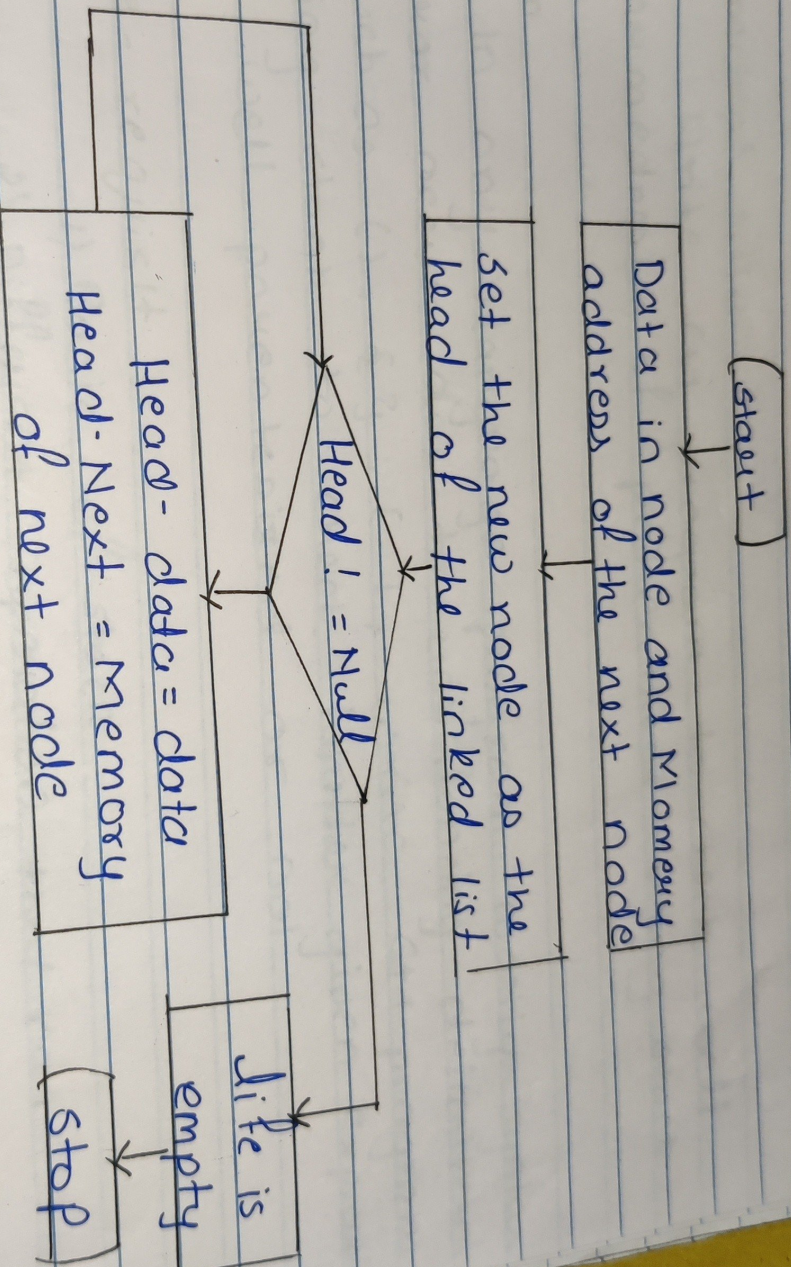 Start
Data in node and Momery
address of the next node
Set the new node as the
head of the linked list
Head ! = Null
Head- data = data
Head. Next = Memory
of next node
life is
empty
Stop